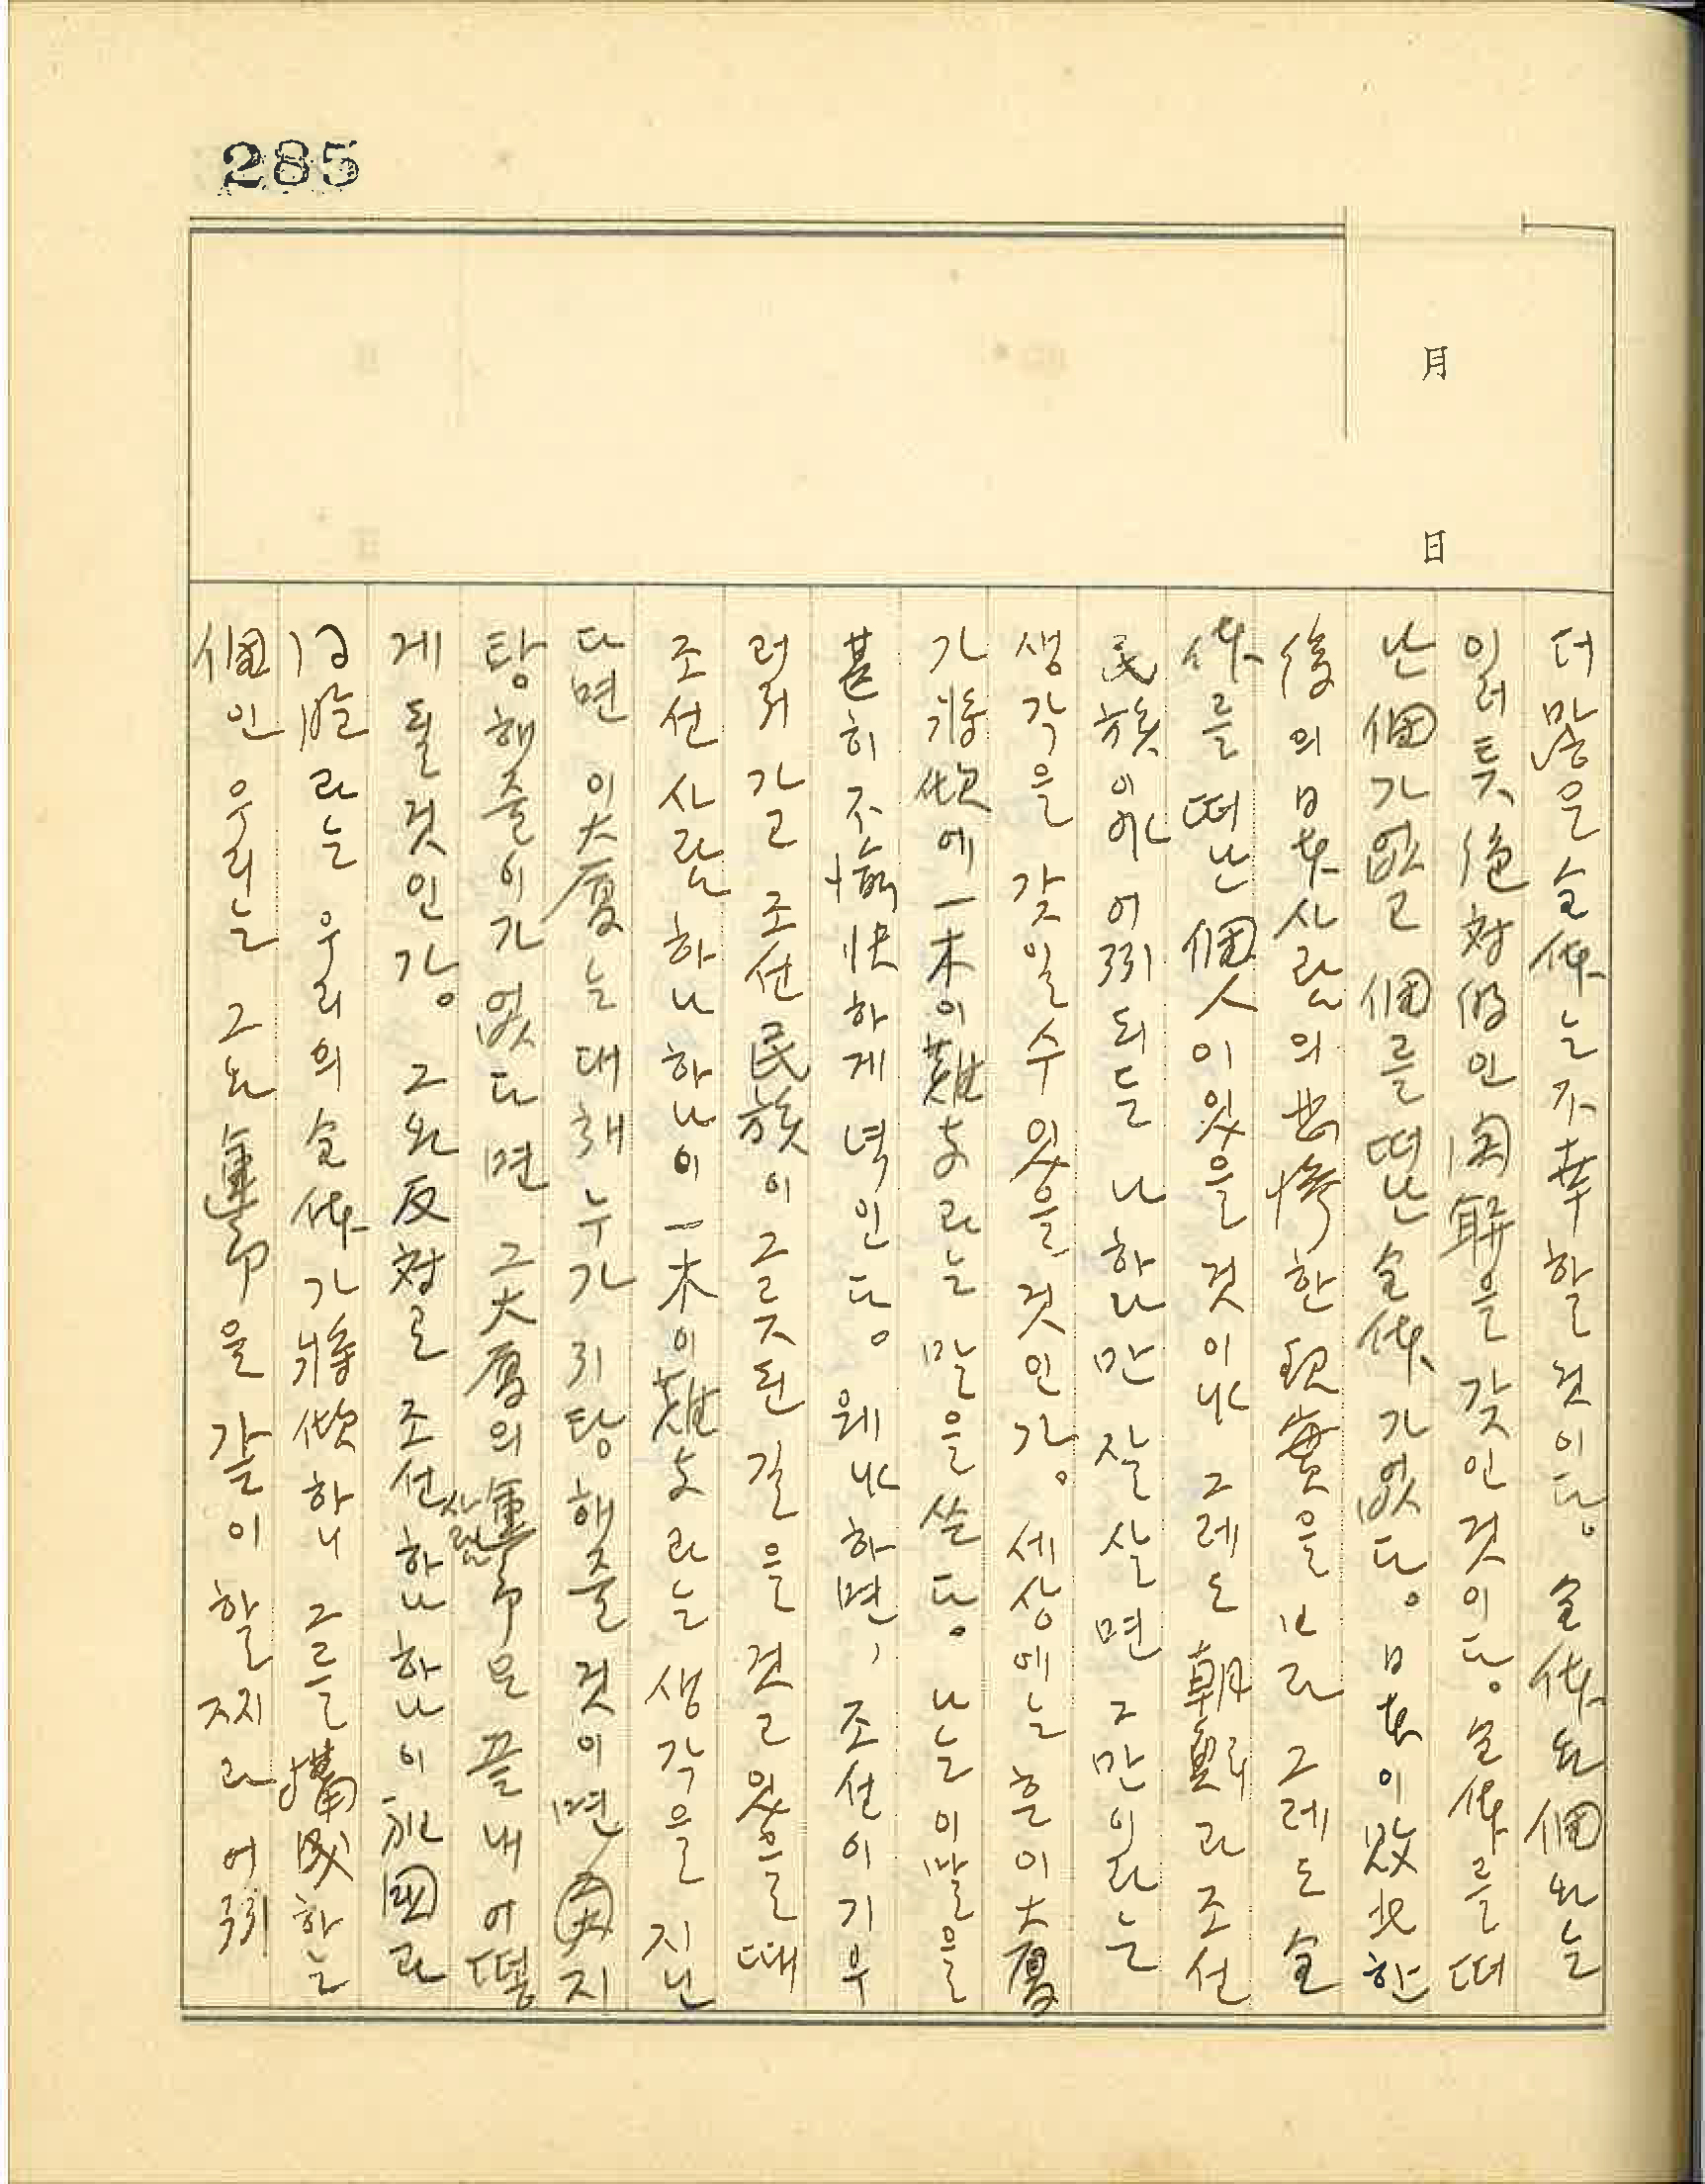 285
月 日
더 많은 全体는 不幸할 것이다. 全体와 個와는
이러틋 絶対的인 関聯을 갖인 것이다. 全体를 떠
난 個가 없고 個를 떠난 全体가 없다. 日本이 敗北한
後의 日本사람의 悲惨한 現實을 보라 그레도 全
体를 떠난 個人이 있을 것이냐 그레도 朝鮮과 조선
民族이야 어찌 되든 나 하나만 잘 살면 그만이라는
생각을 갖일 수 있을 것인가. 세상에는 흔이 大廈
가 將傾에 一木이 難支라는 말을 쓴다. 나는 이 말을
甚히 不愉快하게 녁인다. 웨냐하면, 조선이 기우
러저 가고 조선民族이 그릇된 길을 걷고 있을 때
조선사람 하나하나이 一木이 難支라는 생각을 진닌
다면 이 大廈는 대해 누가 지탕해줄 것이면 지
탕해줄이가 없다면 그 大廈의 運命은 끝내 어떻
게 될 것인가. 그와 反対로 조선사람 하나하나이 祖國과
同胞라는 우리의 全体가 將傾하니 그를 構成하는
個인 우리는 그와 運命을 같이 할찌라 어찌